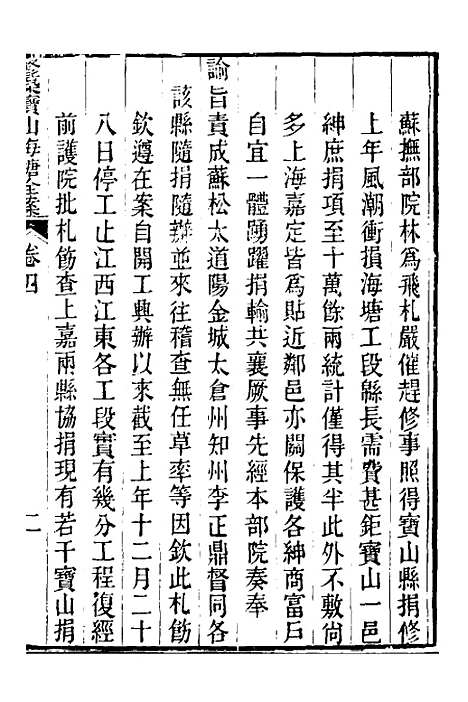 蘇撫部院林爲飛札嚴催趕修事照得寶山縣捐修
上年風潮衝損海塘工段緜長需費甚鉅寶山一邑
紳庶捐項至十萬餘兩統計僅得其半此外不敷尙
多上海嘉定皆爲貼近鄰邑亦關保護各紳商富戶
自宜一體踴躍捐輸共襄厥事先經本部院奏奉
諭旨責成蘇松太道陽金城太倉州知州李正鼎督同各
該縣隨捐隨辦並來往稽查無任草率等因欽此札飭
欽遵在案自開工興辦以來截至上年十二月二十
八日停工止江西江東各工段實有幾分工程復經
前護院批札飭查上嘉兩縣協捐現有若干寶山捐
寶山海塘全案
卷四
二